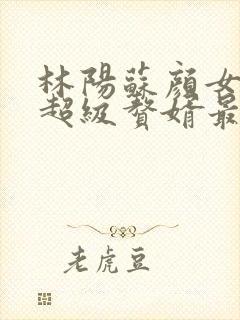 林陽蘇顔女
超級贅婿最
老虎豆